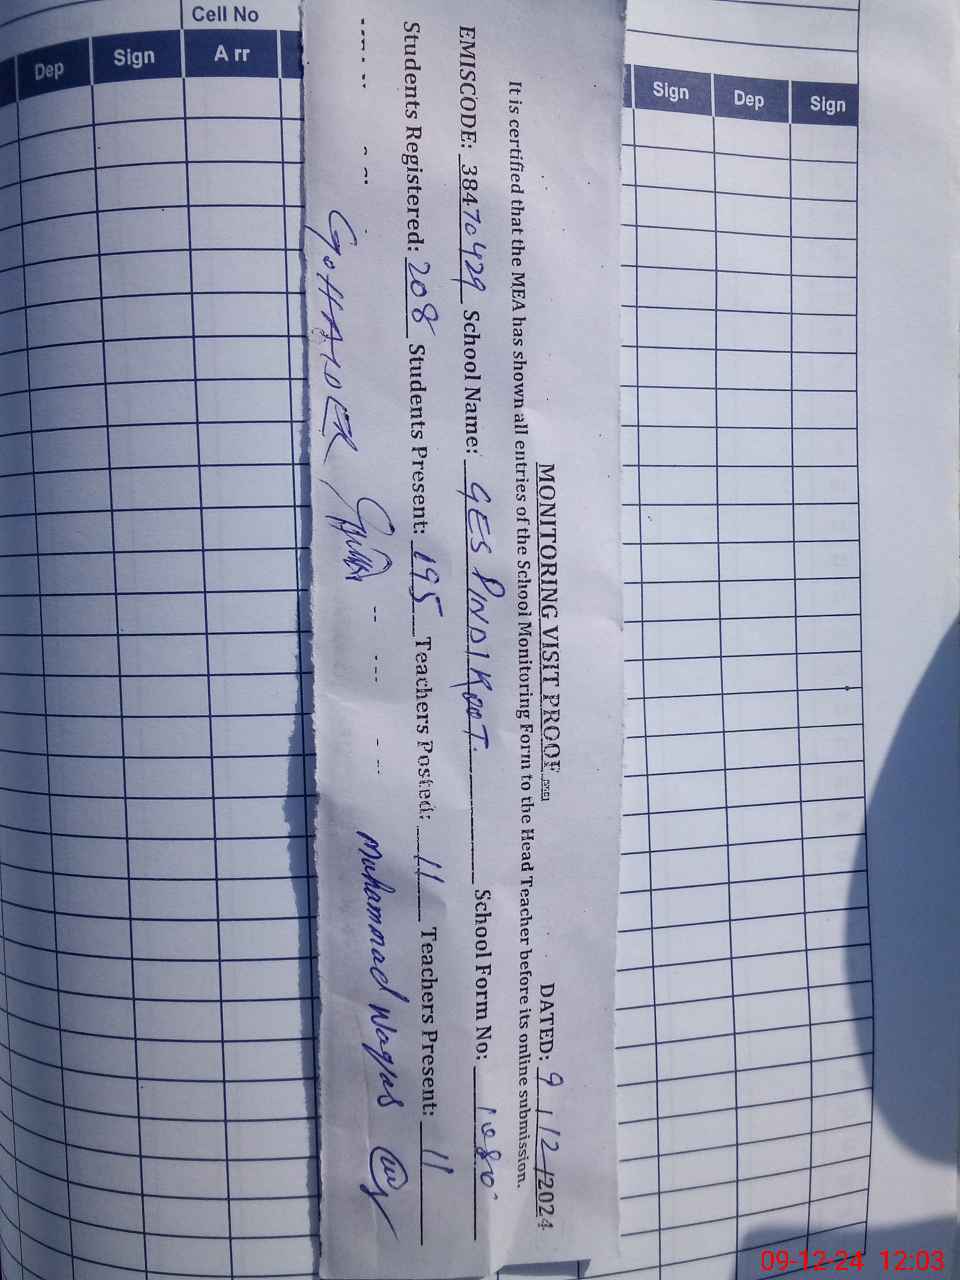 Cell No
Dep Sign Arr
Sign Dep Sign
MONITORING VISIT PROOF DATED: 9/12/2024
It is certified that the MEA has shown all entries of the School Monitoring Form to the Head Teacher before its online submission.
EMISCODE: 38470429 School Name: GES PINDIKOOT. School Form No: 1080
Students Registered: 208 Students Present: 195 Teachers Posted: 11 Teachers Present: 11
Muhammad Waqas
09-12-24 12:03